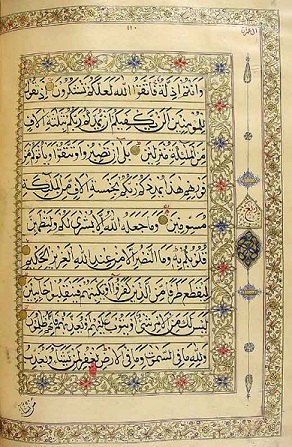 وانتم اذلة فاتقوا الله لعلكم تشكرون اذ تقول
للمؤمنين الن يكفيكم ان يمدكم ربكم بثلثة الاف
من الملئكة منزلين بلى ان تصبروا وتتقوا وياتوكم من
فورهم هذا يمددكم ربكم بخمسة الاف من الملئكة
مسومين وما جعله الله الا بشرى لكم ولتطمئن
قلوبكم به وما النصر الا من عند الله العزيز الحكيم
ليقطع طرفا من الذين كفروا او يكبتهم فينقلبوا خائبين
ليس لك من الامر شيء او يتوب عليهم او يعذبهم فانهم ظلمون
ولله ما في السموت وما في الارض يغفر لمن يشاء ويعذب